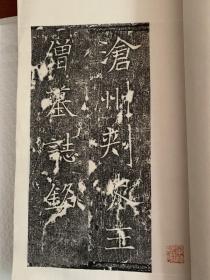 滄州刾史王
僧墓誌銘